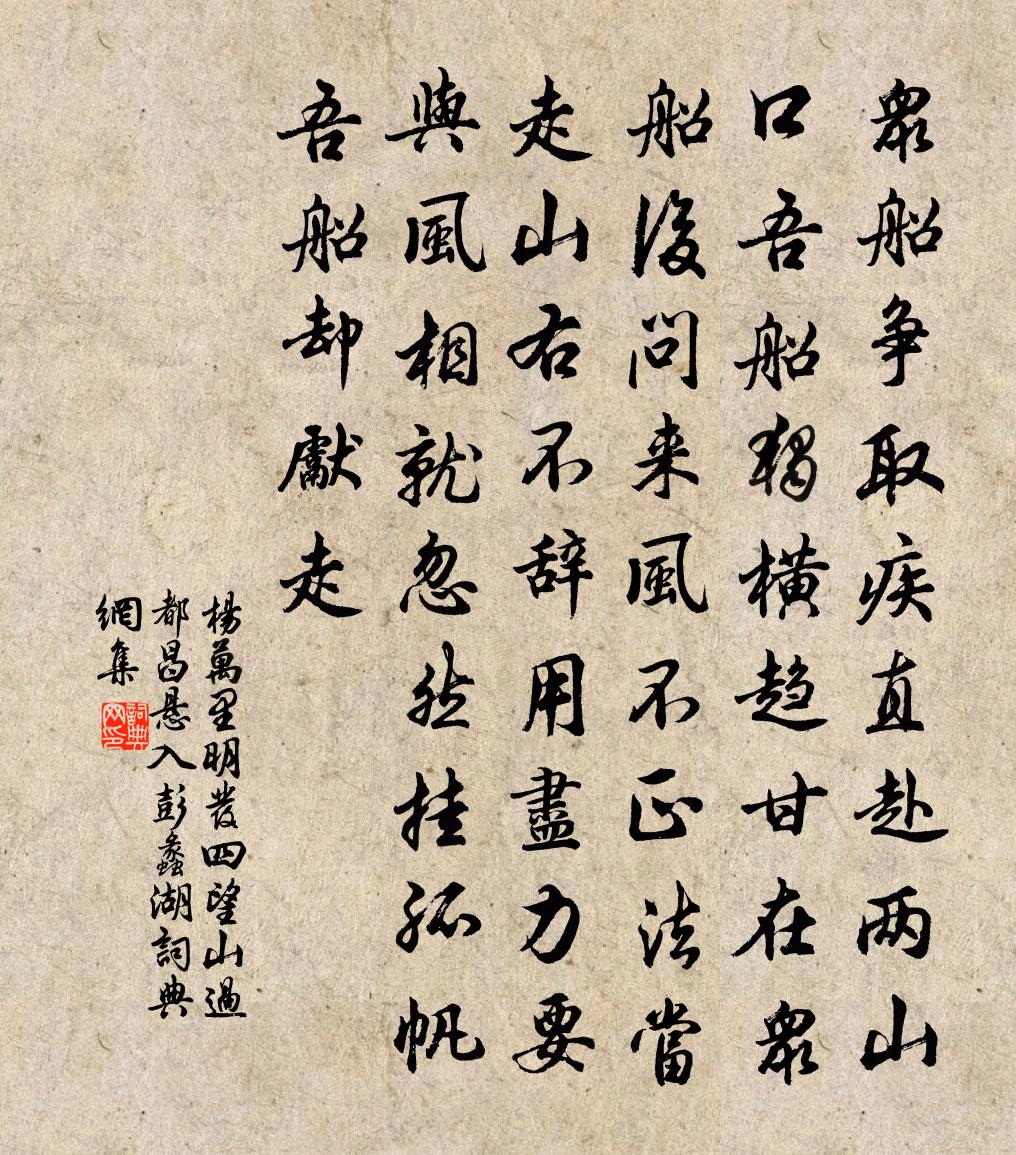 眾船争取疾直赴两山
口吾船獨橫趋甘在眾
船後问来風不正法當
走山右不辞用盡力要
與風相就忽然挂孤帆
吾船却獻走
楊萬里明發四望山過
都昌悬入彭蠡湖詞典
網集
詞典
网印